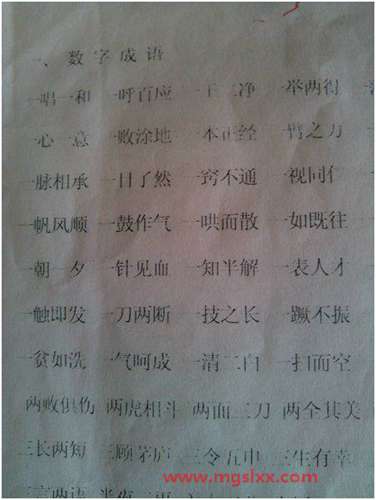 一、数字成语
一唱一和 一呼百应 一干二净 一举两得
一心一意 一败涂地 一本正经 一臂之力
一脉相承 一目了然 一窍不通 一视同仁
一帆风顺 一鼓作气 一哄而散 一如既往
一朝一夕 一针见血 一知半解 一表人才
一触即发 一刀两断 一技之长 一蹶不振
一贫如洗 一气呵成 一清二白 一扫而空
两败俱伤 两虎相斗 两面三刀 两全其美
三长两短 三顾茅庐 三令五申 三生有幸
三言两语
www.mgslxx.com